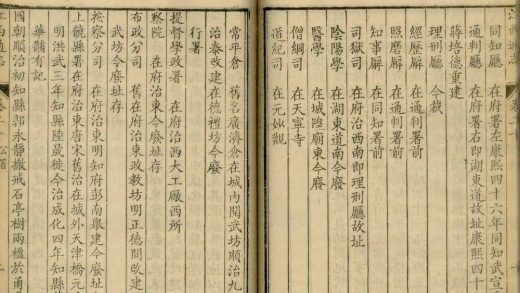 同知廳　在府署左康熙四十六年同知武宣
通判廳　在府署右即湖東道故址康熙四十
蔣培德重建
理刑廳　今裁
經歷廨　在通判署前
照磨廨　在通判署前
知事廨　在同知署前
司獄司　在府治西南即理刑廳故址
陰陽學　在湖東道南今廢
醫學　在城隍廟東今廢
僧綱司　在天寧寺
道紀司　在元妙觀
常平倉　舊名廣濟倉在城內閱武坊順治九
治泰改建在德禮坊今廢
行署
提督學政署　在府治西大工廠西所
察院　在府治東今廢址存
布政分司　舊在府治東政教坊明正德間改建
武坊今廢址存
按察分司　在府治東明知府彭南舉建今廢址
上饒縣署在府治東唐宋舊治在城外天津橋元
明洪武三年知縣陸晟徙今治成化四年知縣
華鸞有記
國朝順治初知縣郭永靜撤戒石亭樹兩楹於甬
江西通志